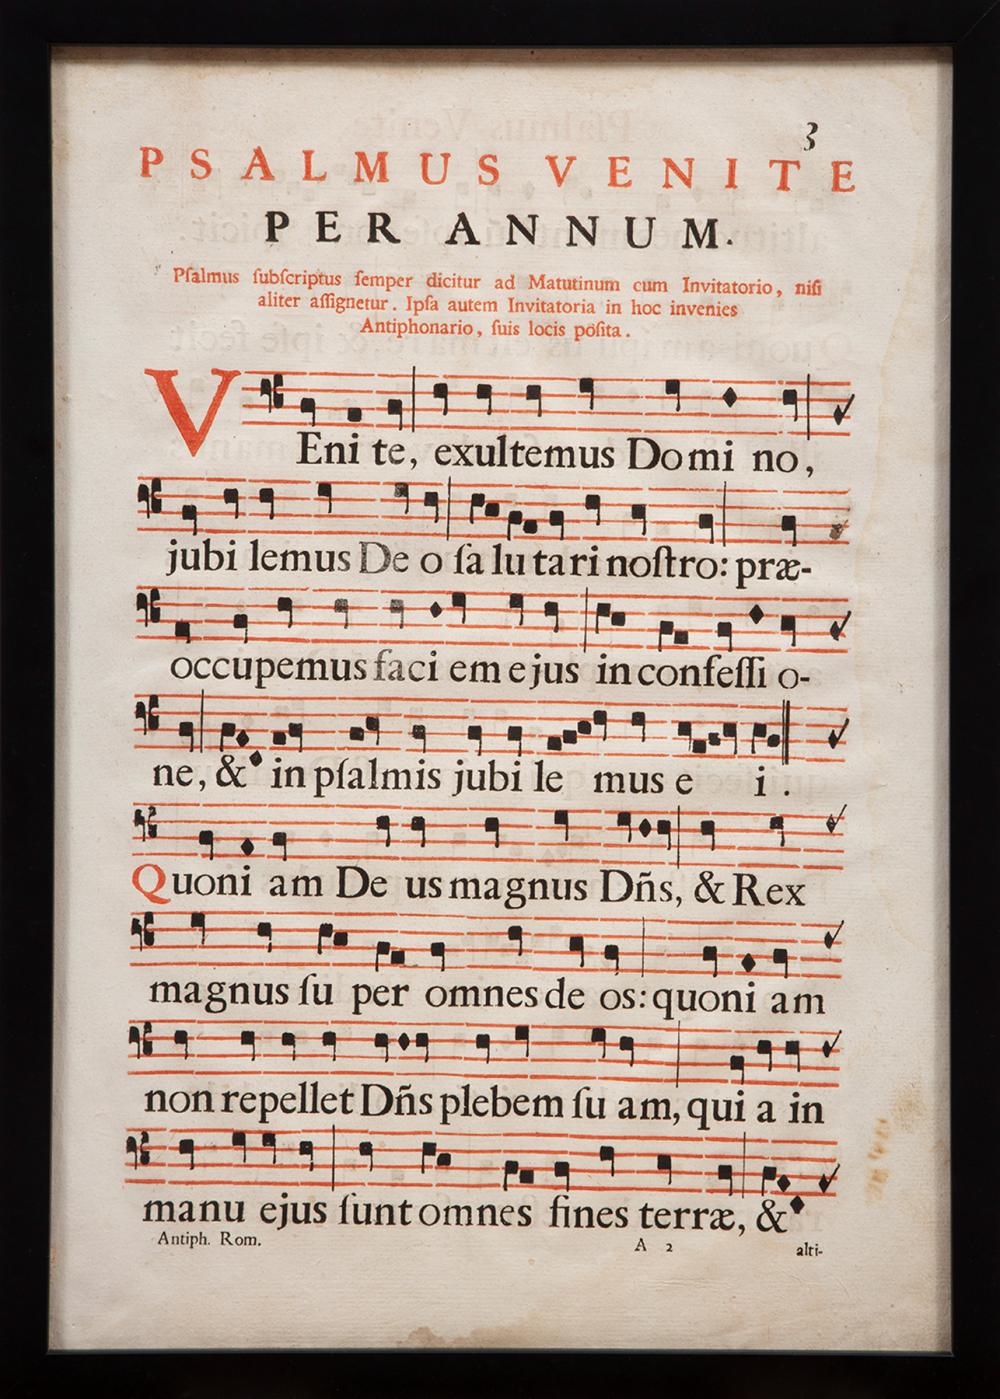 3
PSALMUS VENITE
PER ANNUM.
Pſalmus ſubſcriptus ſemper dicitur ad Matutinum cum Invitatorio, niſi
aliter aſſignetur. Ipſa autem Invitatoria in hoc invenies
Antiphonario, ſuis locis poſita.
VEni te, exultemus Domi no,
jubi lemus De o ſa lu ta ri noſtro: præ-
occupemus faci em ejus in confeſſi o-
ne, & in pſalmis jubi le mus e i.
Quoni am De us magnus Dñs, & Rex
magnus ſu per omnes de os: quoni am
non repellet Dñs plebem ſu am, qui a in
manu ejus ſunt omnes fines terræ, &
Antiph. Rom. A 2 alti-